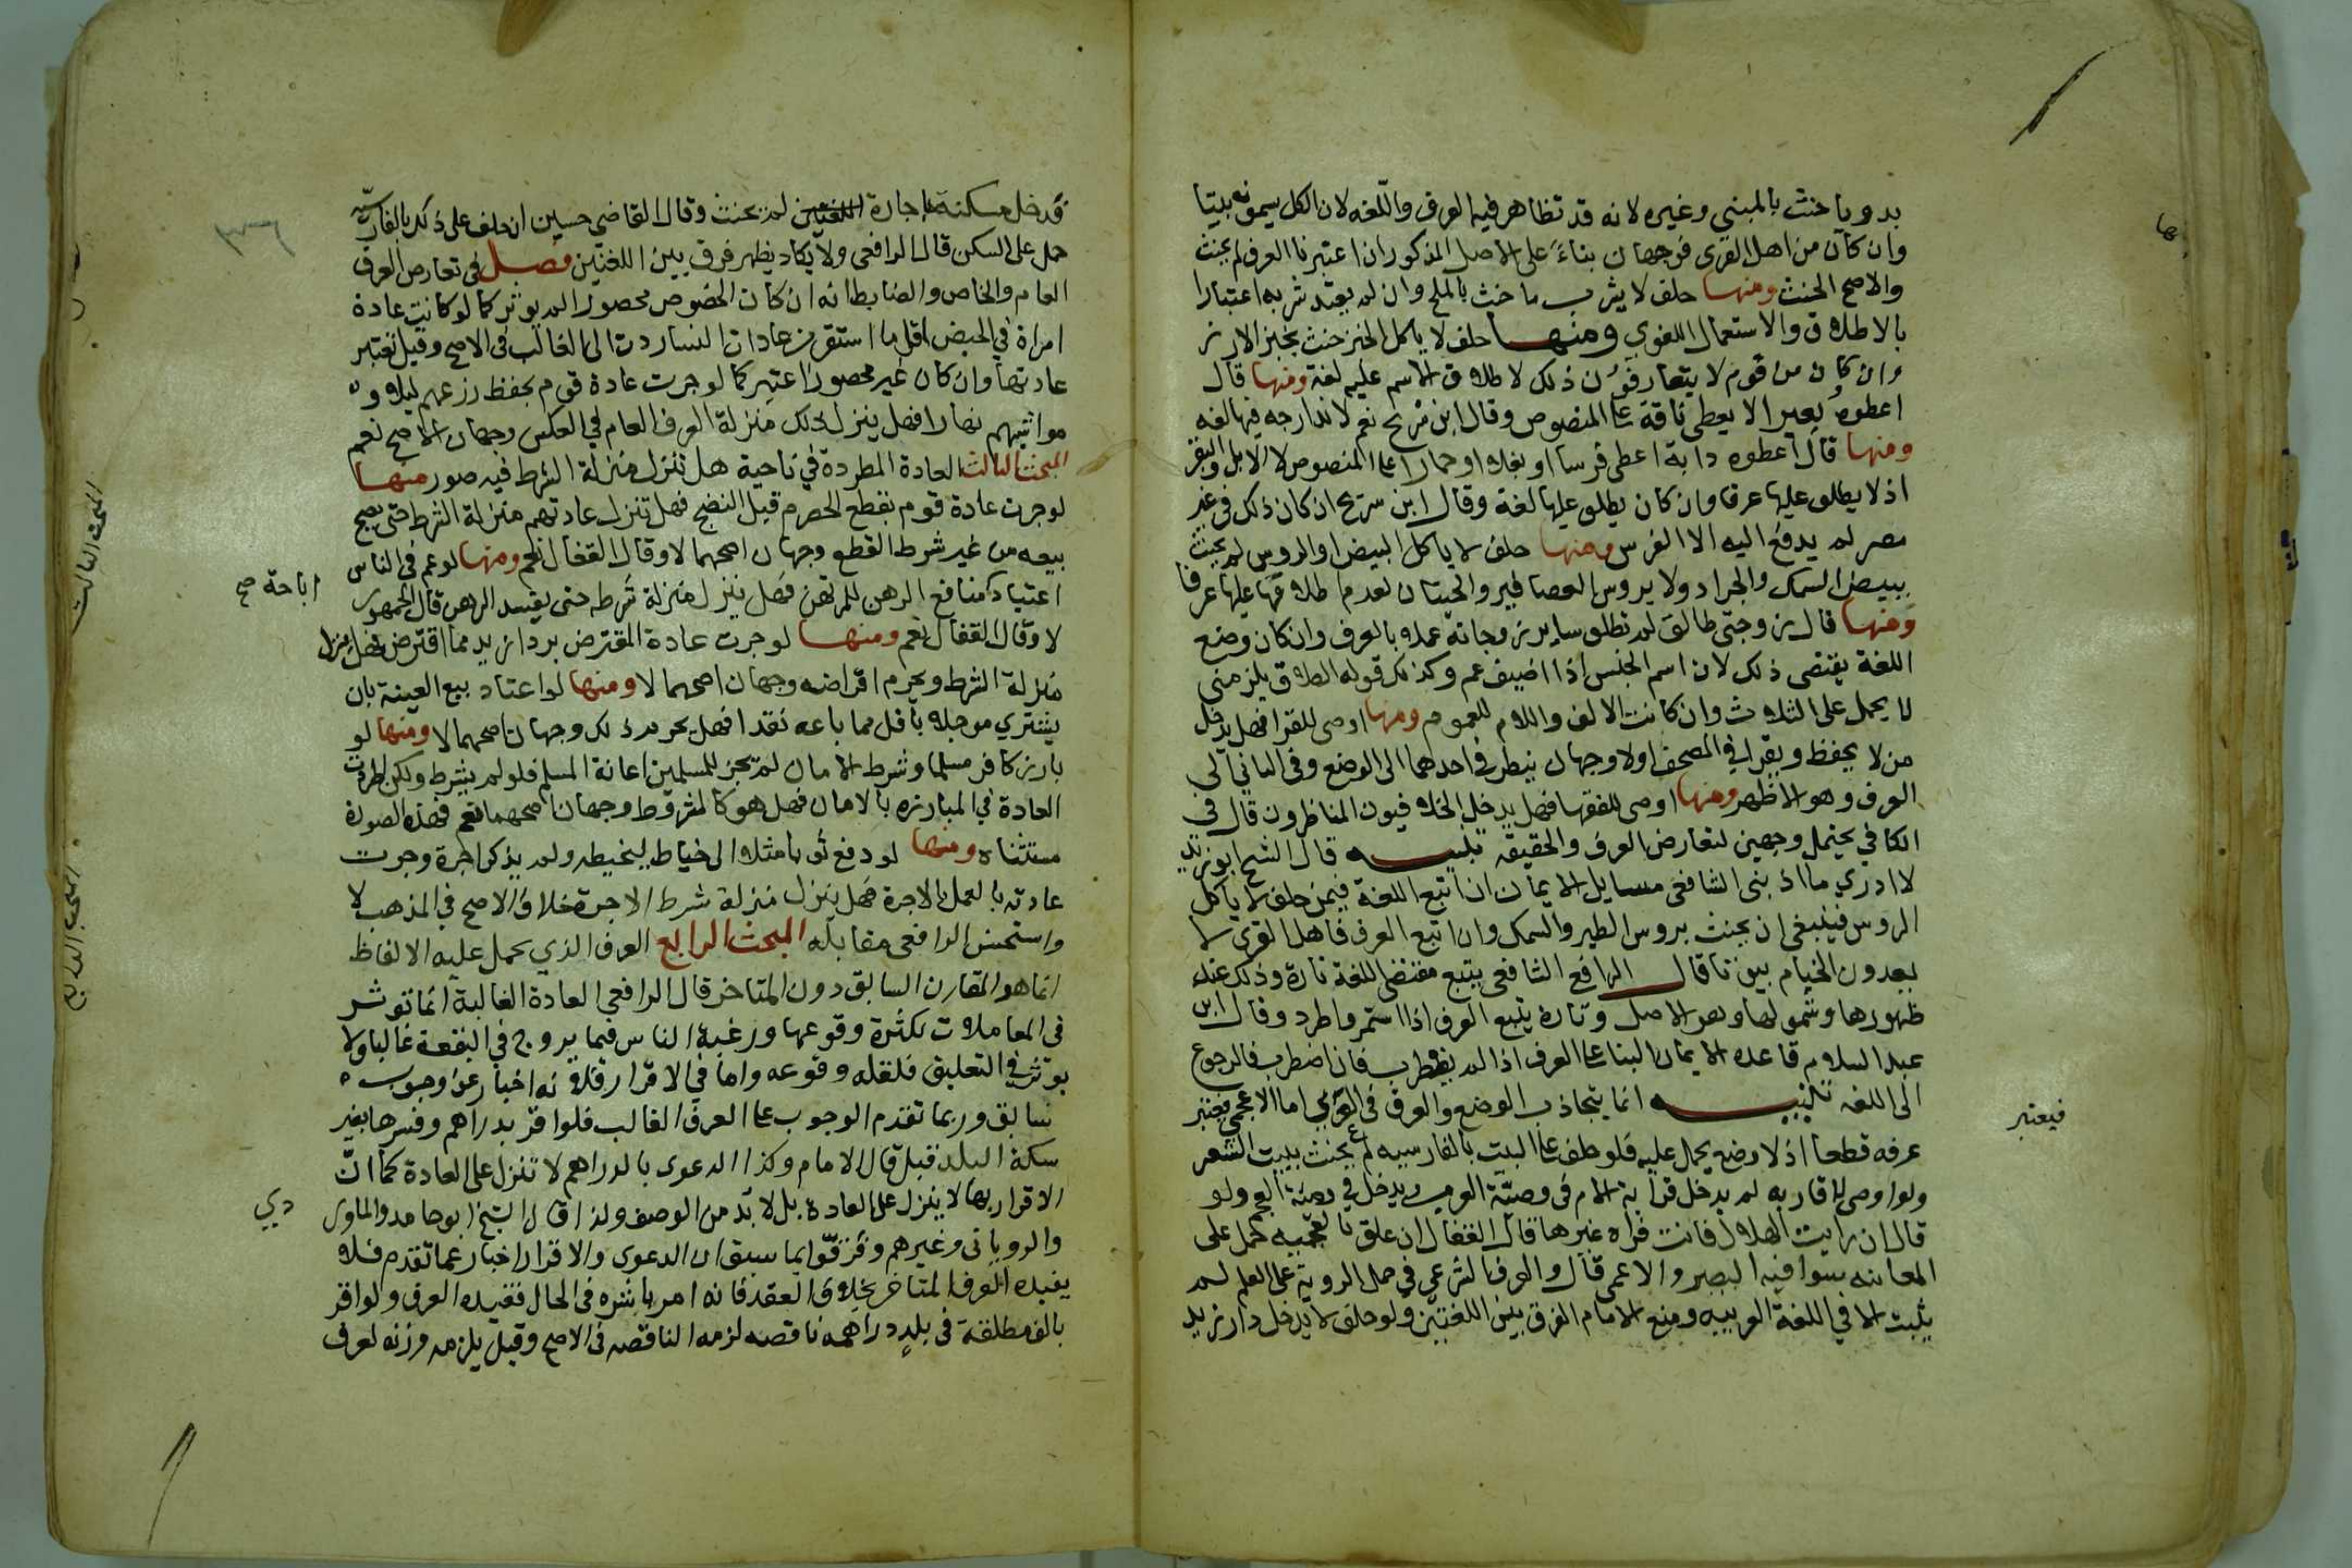 بدويا حنث بالمبني وغيره لانه قد تظاهر فيه العرف واللغه لان الكل يسمونه بيتا
وان كان من اهل القرى فوجهان بناء على الاصل المذكور ان اعتبرنا العرف لم يحنث
والاصح الحنث ومنها حلف لا يشرب ما حنث بالملح وان لم يعتد شربه اعتبارا
بالاطلاق والاستعمال اللغوي ومنها حلف لا ياكل الخبز حنث بخبز الارز
وان كان من قوم لا يتعارفون ذلك لاطلاق الاسم عليه لغة ومنها قال
اعطوه بعيرا لا يعطى ناقة على المنصوص وقال ابن سريح نعم لاندراجه فيه لغه
ومنها قال اعطوه دابة اعطى فرسا او بغلا او حمارا على المنصوص لا الابل والبقر
اذ لا يطلق عليها عرفا وان كان يطلق عليها لغة وقال ابن سريح ان كان ذلك في غير
مصر لم يدفع اليه الا الفرس ومنها حلف لا ياكل البيض او الروس لم يحنث
ببيض السمك والجراد ولا بروس العصافير والحيتان لعدم اطلاقها عليها عرفا
ومنها قال زوجتي طالق لم تطلق ساير زوجاته عملا بالعرف وان كان وضع
اللغة يقتضى ذلك لان اسم الجنس اذا اضيف عم وكذلك قوله الطلاق يلزمني
لا يحمل على الثلاث وان كانت الالف واللام للعموم ومنها اوصى للقرا فهل يدخل
من لا يحفظ ويقرا في المصحف اولا وجهان ينظر في احدهما الى الوضع وفي الثاني الى
العرف وهو الاظهر ومنها اوصى للفقها فهل يدخل الخلافيون المناظرون قال في
الكافي يحتمل وجهين لتعارض العرف والحقيقه تنبيه قال الشيخ ابو زيد
لا ادري ماذا بنى الشافعي مسايل الايمان ان اتبع اللغة فيمن حلف لا ياكل
الروس فينبغي ان يحنث بروس الطير والسمك وان اتبع العرف فاهل القرى لا
يعدون الخيام بيوتا قال الرافعي الشافعي يتبع مقتضى اللغة تارة وذلك عند
ظهورها وشمولها وهو الاصل وتارة يتبع العرف اذا استمر واطرد وقال ابن
عبد السلام قاعدة الايمان البنا على العرف اذا لم يضطرب فان اضطرب فالرجوع
الى اللغه تنبيه انما يتجاذب الوضع والعرف في العربي اما الاعجمي فيعتبر
فيعتبر
عرفه قطعا اذ لا وضع يحمل عليه فلو حلف على البيت بالفارسيه لم يحنث ببيت الشعر
ولو اوصى لاقاربه لم يدخل قرابة الام في وصيّة العرب ويدخل في وصيّة العجم ولو
قال ان رايت الهلال فانت فراه غيرها قال القفال ان علق بالعجميه حمل على
المعاينه سوا فيه البصير والاعمى قال والعرف الشرعي في حمل الروية على العلم لم
يثبت الا في اللغة العربيه ومنع الامام الفرق بين اللغتين ولو حلف لا يدخل دار زيد
فدخل مسكنه باجارة لم يحنث وقال القاضي حسين ان حلف على ذلك بالفارسيّه
حمل على السكن قال الرافعي ولا يكاد يظهر فرق بين اللغتين فصل في تعارض العرف
العام والخاص والضابط انه ان كان الخصوص محصورا لم يوثر كما لو كانت عادة
امراة في الحيض اقل ما استقر من عادات النسا ردت الى الغالب في الاصح وقيل تعتبر
عادتها وان كان غير محصور اعتبر كما لو جرت عادة قوم بحفظ زرعهم ليلا و
مواشيهم نهارا فهل ينزل ذلك منزلة العرف العام في العكس وجهان الاصح نعم
المبحث الثالث العادة المطردة في ناحية هل تنزل منزلة الشرط فيه صور منها
لو جرت عادة قوم بقطع الحصرم قبل النضج فهل تنزل عادتهم منزلة الشرط حتى يصح
بيعه من غير شرط القطع وجهان اصحهما لا وقال القفال نعم ومنها لو عم في الناس
اعتياد منافع الرهن للمرتهن فهل ينزل منزلة شرطه حتى يفسد الرهن قال الجمهور
اباحة صح
لا وقال القفال نعم ومنها لو جرت عادة المقترض برد ازيد مما اقترض فهل ينزل
منزلة الشرط ويحرم اقراضه وجهان اصحهما لا ومنها لو اعتاد بيع العينة بان
يشتري موجلا باقل مما باعه نقدا فهل يحرم ذلك وجهان اصحهما لا ومنها لو
بارز كافر مسلما وشرط الامان لم يجز للمسلمين اعانة المسلم فلو لم يشرط ولكن اطردت
العادة في المبارزه بالامان فهل هو كالمشروط وجهان اصحهما نعم فهذه الصورة
مستثناه ومنها لو دفع ثوبا مثلا الى خياط ليخيطه ولم يذكر اجرة وجرت
عادته بالعمل بالاجرة فهل ينزل منزلة شرط الاجرة خلاف الاصح في المذهب لا
واستحسن الرافعي مقابله المبحث الرابع العرف الذي يحمل عليه الالفاظ
انما هو المقارن السابق دون المتاخر قال الرافعي العادة الغالبة انما توثر
في المعاملات لكثرة وقوعها ورغبة الناس فيما يروج في البقعة غالبا ولا
يوثر في التعليق فلقلة وقوعه واما في الاقرار فلانه اخبار عن وجوب
سابق وربما تقدم الوجوب على العرف الغالب فلو اقر بدراهم وفسرها بغير
سكة البلد قبل قال الامام وكذا الدعوى بالدراهم لا تنزل على العادة كما انّ
الاقرار بها لا ينزل على العادة بل لا بد من الوصف ولذا قال الشيخ ابو حامد والماوردي
دي
والروياني وغيرهم وفرّقوا بما سبق ان الدعوى والاقرار اخبار عما تقدم فلا
يفيده العرف المتاخر بخلاف العقد فانه امر باشره في الحال فقيده العرف ولو اقر
بالف مطلقة في بلد دراهمه ناقصه لزمه الناقصه في الاصح وقيل يلزمه وزنه لعرف
المبحث الثالث
المبحث الرابع